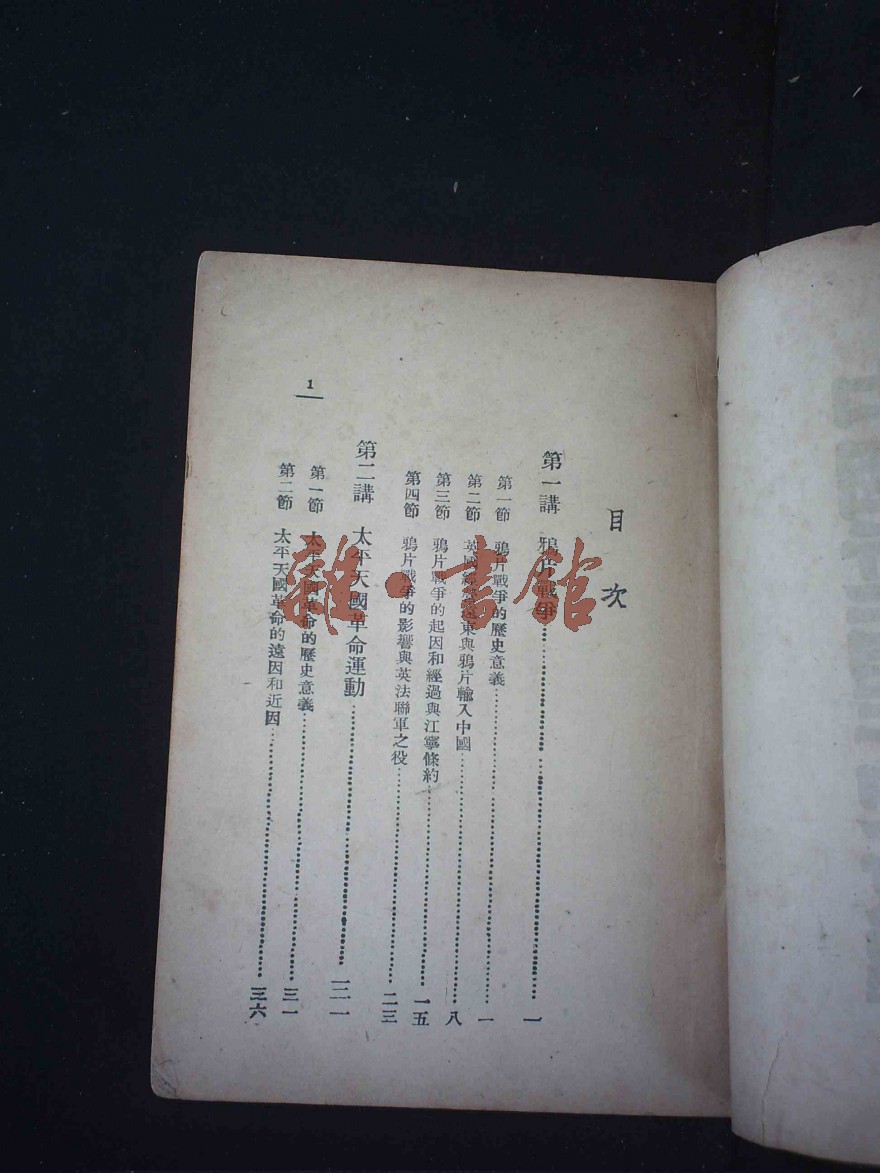 目次
第一講 鴉片戰爭 一
第一節 鴉片戰爭的歷史意義 一
第二節 英國經營遠東與鴉片輸入中國 八
第三節 鴉片戰爭的起因和經過與江寧條約 一五
第四節 鴉片戰爭的影響與英法聯軍之役 二三
第二講 太平天國革命運動 三一
第一節 太平天國革命的歷史意義 三一
第二節 太平天國革命的遠因和近因 三六
1
雜·書館